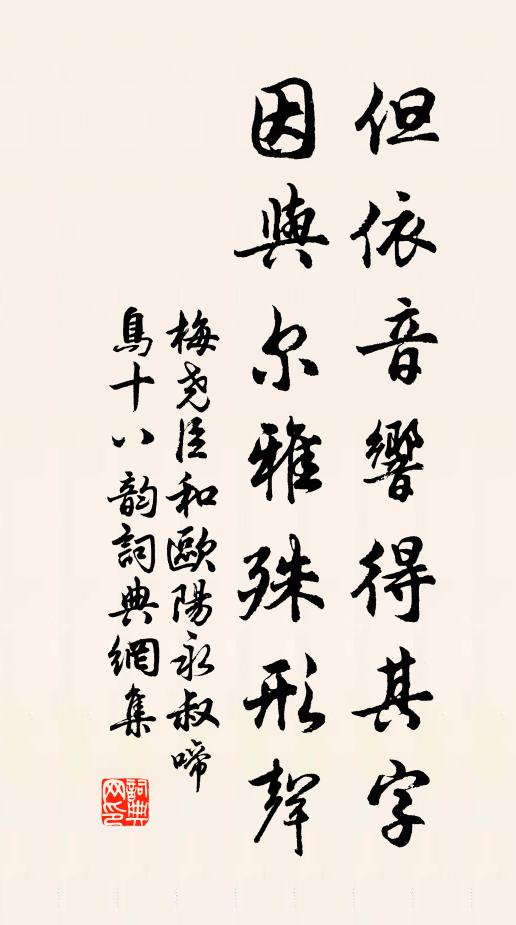 但依音響得其字
因與尔雅殊形聲
梅堯臣和歐陽永叔啼
鳥十八韵詞典網集
詞典网印